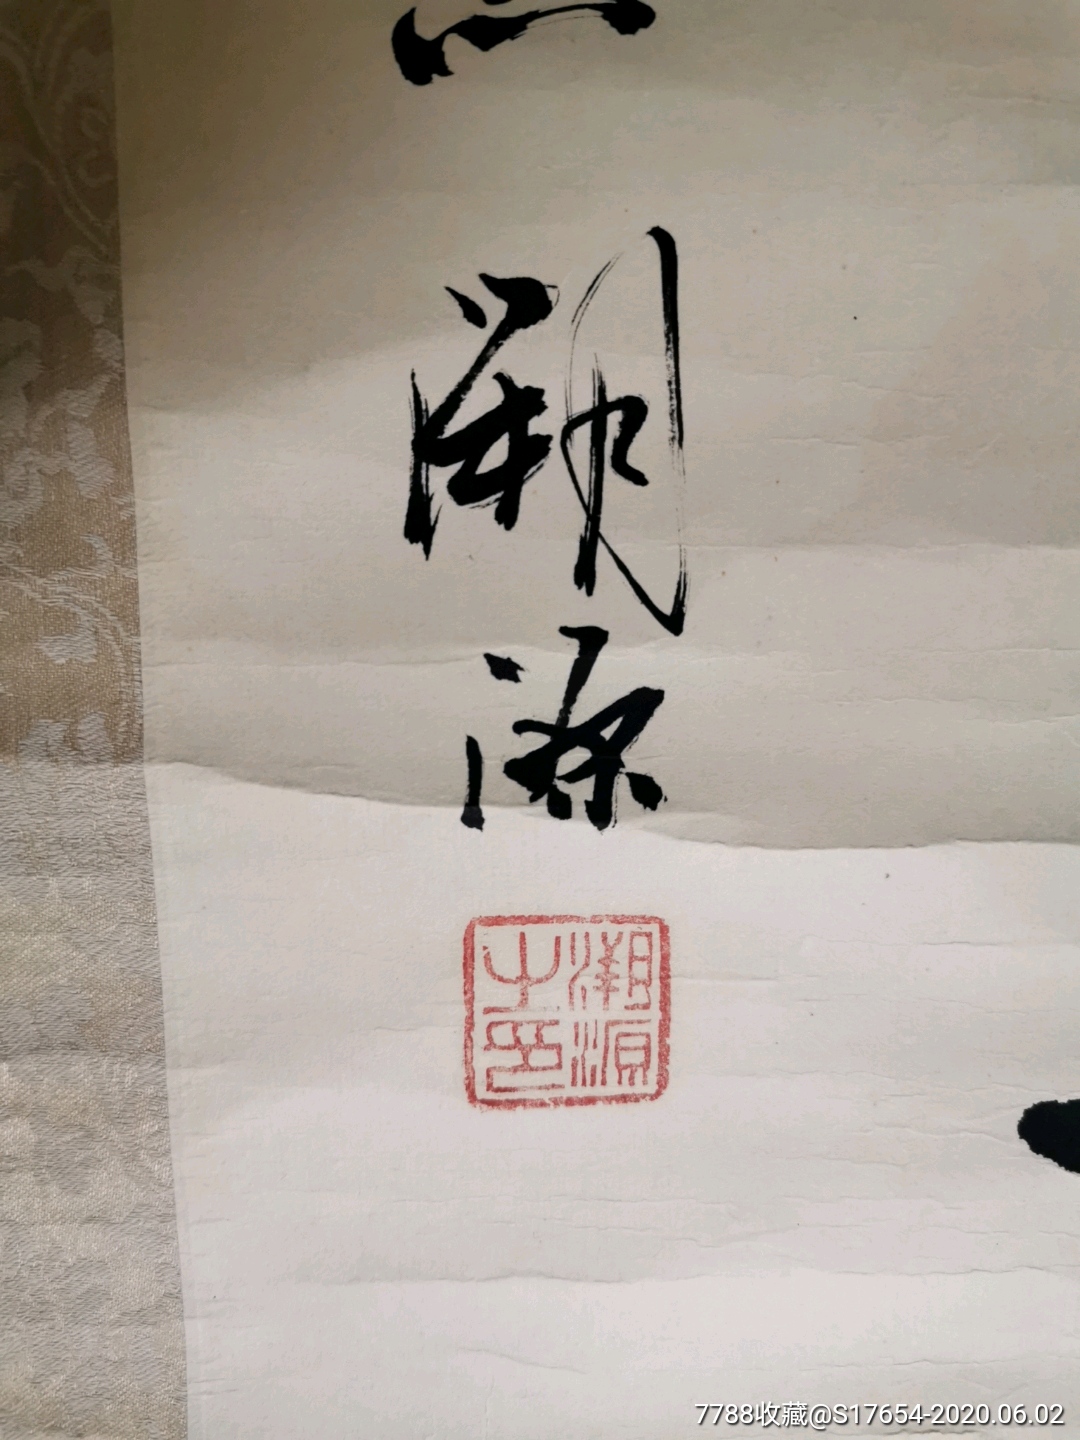 溯源
溯源
之印
7788收藏@S17654-2020.06.02